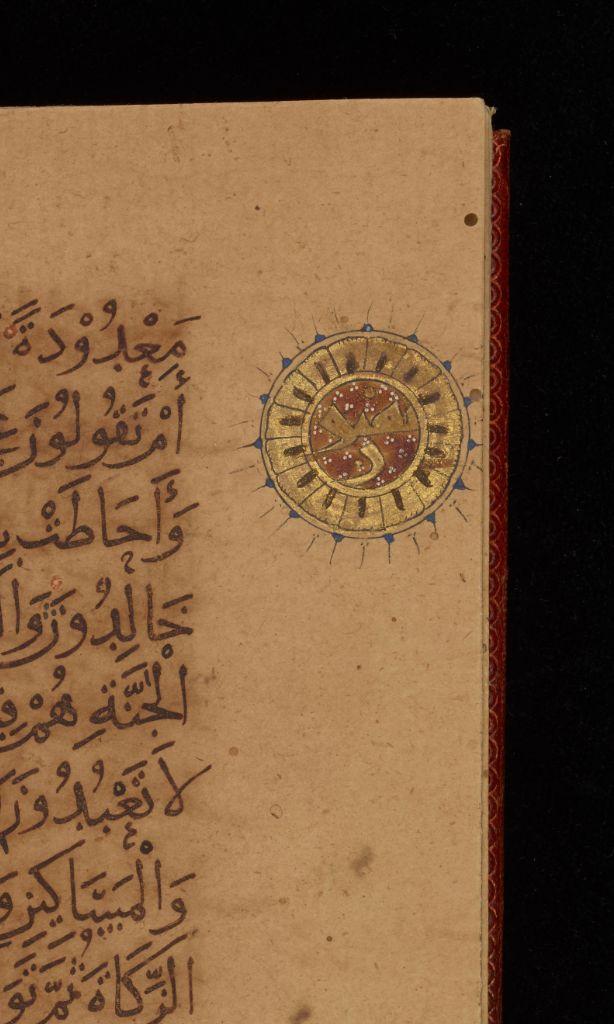 مَعْدُوْدَةً
أَمْ تَقُولُونَ
وَأَحَاطَتْ
خَالِدُونَ وَال
الْجَنَّةِ هُمْ فِي
لَا تَعْبُدُونَ
وَالْمَسَاكِينِ وَ
الزَّكَاةَ ثُمَّ تَوَ